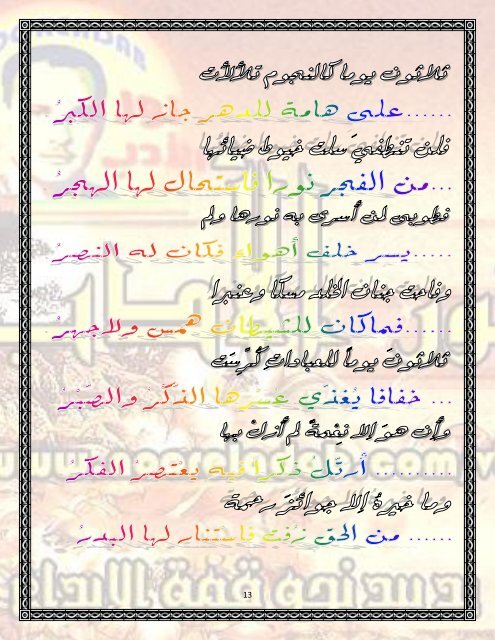 ثلاثون يوما كالنجوم تلألأت
......على هامة للدهر جاز لها الكبرُ
فلن تنطفيَ سلت خيوط ضيائها
...من الفجر نورا فاستحال لها الهجرُ
فطوبى لمن أسرى به نورها ولم
.....يسر خلف أهواء فكان له النصرُ
وفاحت جنان الخلد مسكا وعنبرا
......فماكان للشيطان همس ولاجهرُ
ثلاثونَ يوماً للعبادات كُرِّسَت
... خفافا يُغذي عسرها الذكرُ والصّبْرُ
وأن هوَ إلا نغمةٌ لم أزلْ بها
.......... أرتّلُ ذكرا فيه يعتصرُ الفكرُ
وما خيرهُ إلا جوائزَ رحمة
...... من الحق زفت فاستنار لها البدرُ
13